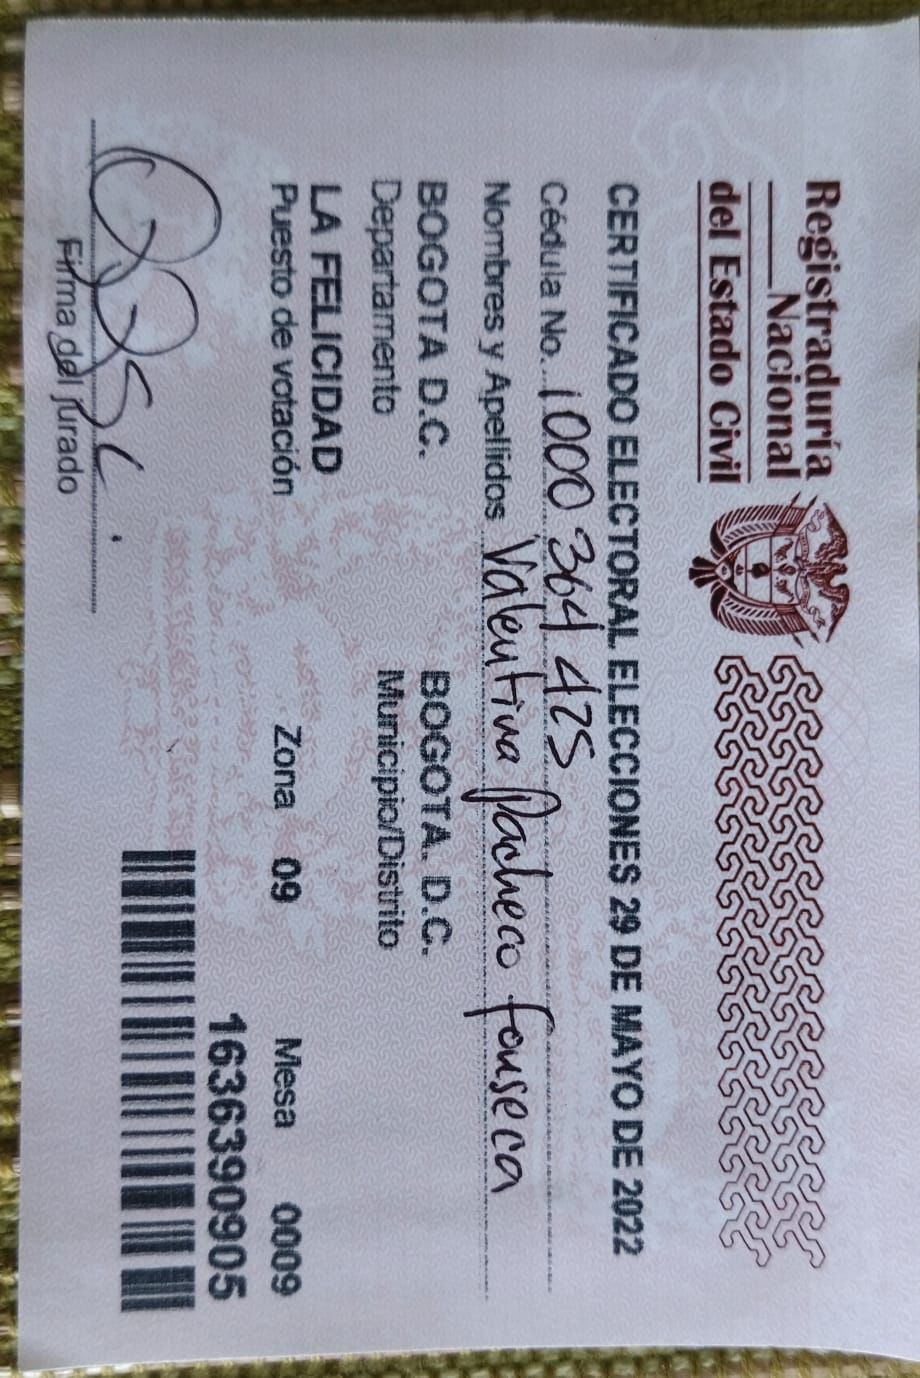 Registraduría
Nacional
del Estado Civil
CERTIFICADO ELECTORAL ELECCIONES 29 DE MAYO DE 2022
Cédula No. 1000 364 425
Nombres y Apellidos Valentina Pacheco fonseca
BOGOTA D.C. BOGOTA. D.C.
Departamento Municipio/Distrito
LA FELICIDAD
Puesto de votación Zona 09 Mesa 0009
1636390905
Firma del jurado